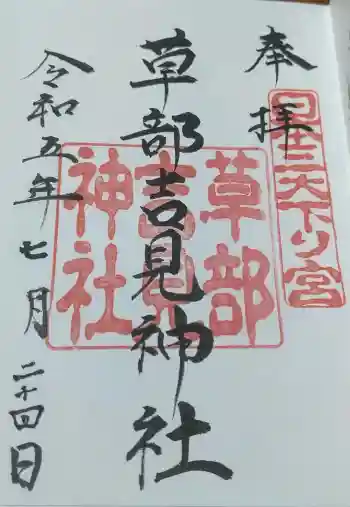 奉拝
日本三大下り宮
草部吉見神社
草部吉見神社
令和五年七月二十四日